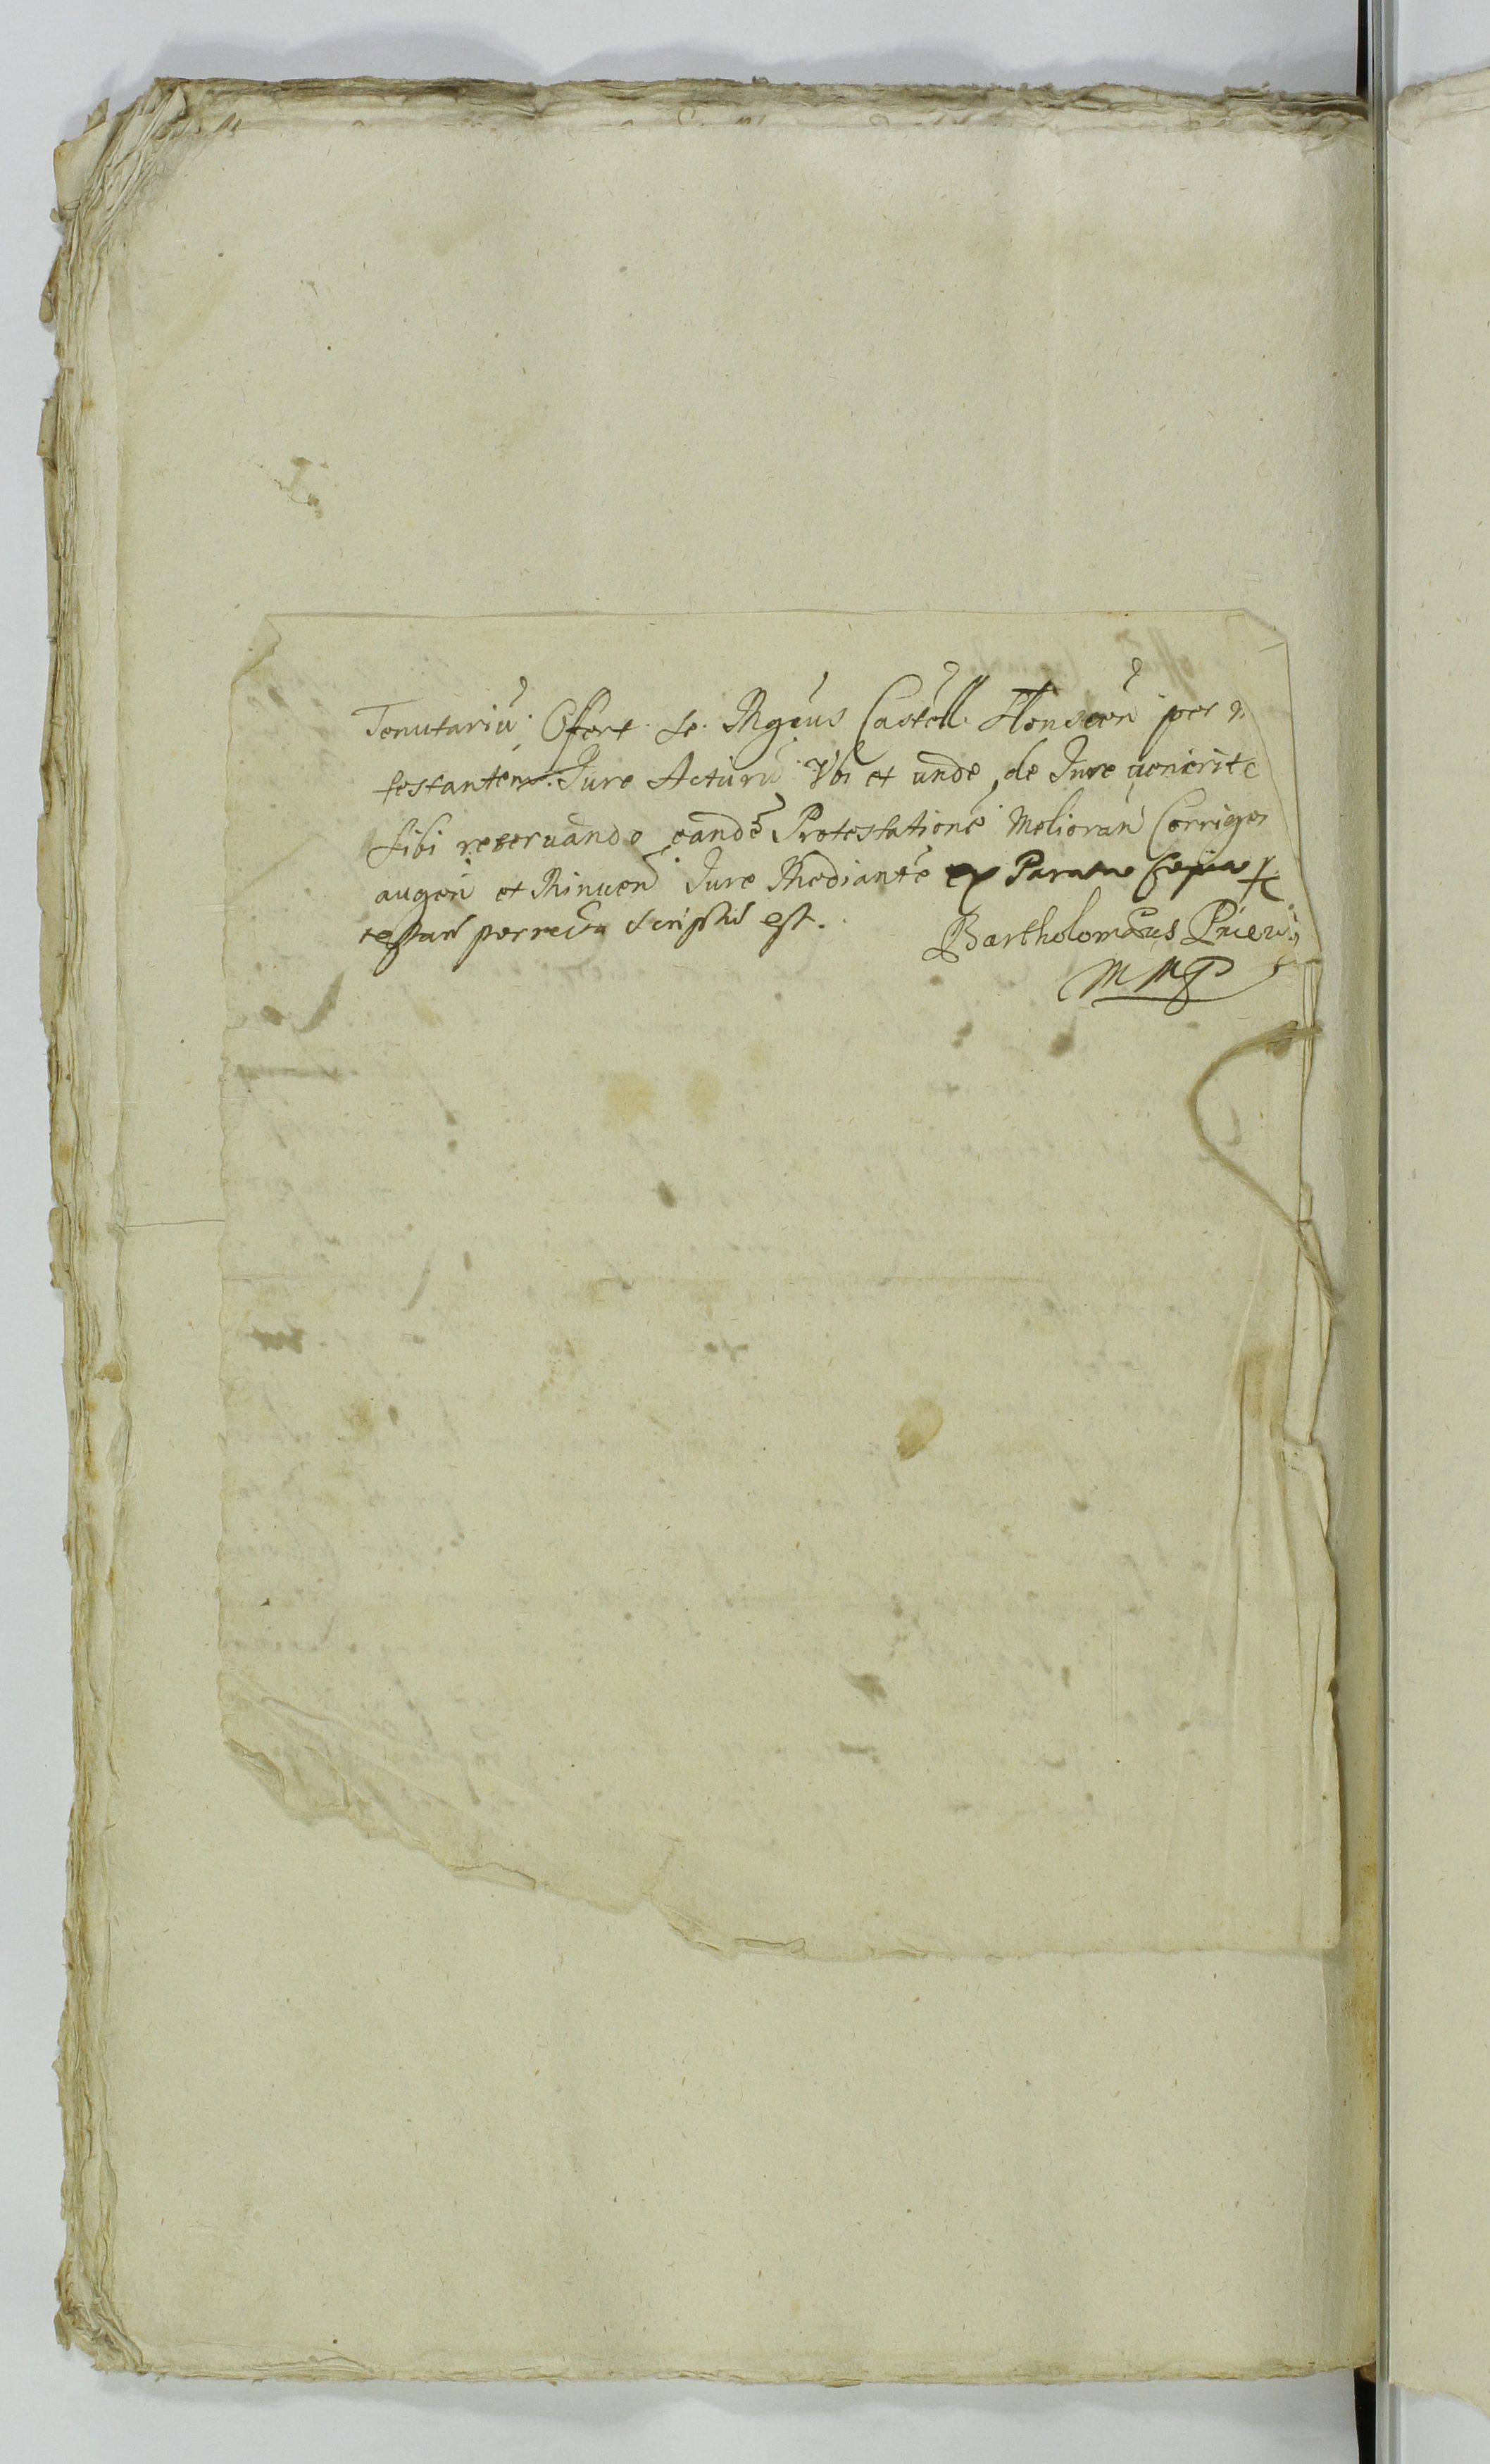 Tenutariu Offert se Mgcus Castell Konscen per
testantem Jure Acturu Vbi et unde de Jure venerit
sibi reseruando eande Protestatione Melioran Corrigen
augen et Minuen Jure Mediante ex Paratae
testan porrecta scriptis est.
Bartholomaeus
MMP